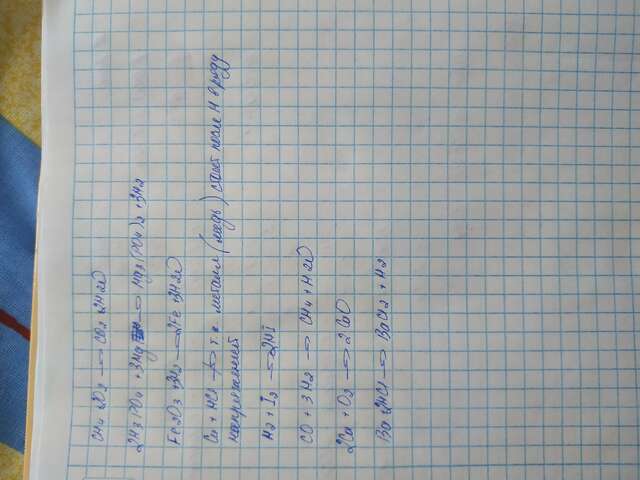 CH4 + 2O2 → CO2 + 2H2O
2H3PO4 + 3Mg → Mg3(PO4)2 + 3H2
Fe2O3 + 3H2 → 2Fe + 3H2O
Cu + HCl ↛ т.к. металл (медь) стоит после H в ряду
напряжений
H2 + I2 → 2HI
CO + 3H2 → CH4 + H2O
2Ca + O2 → 2CaO
Ba + 2HCl → BaCl2 + H2